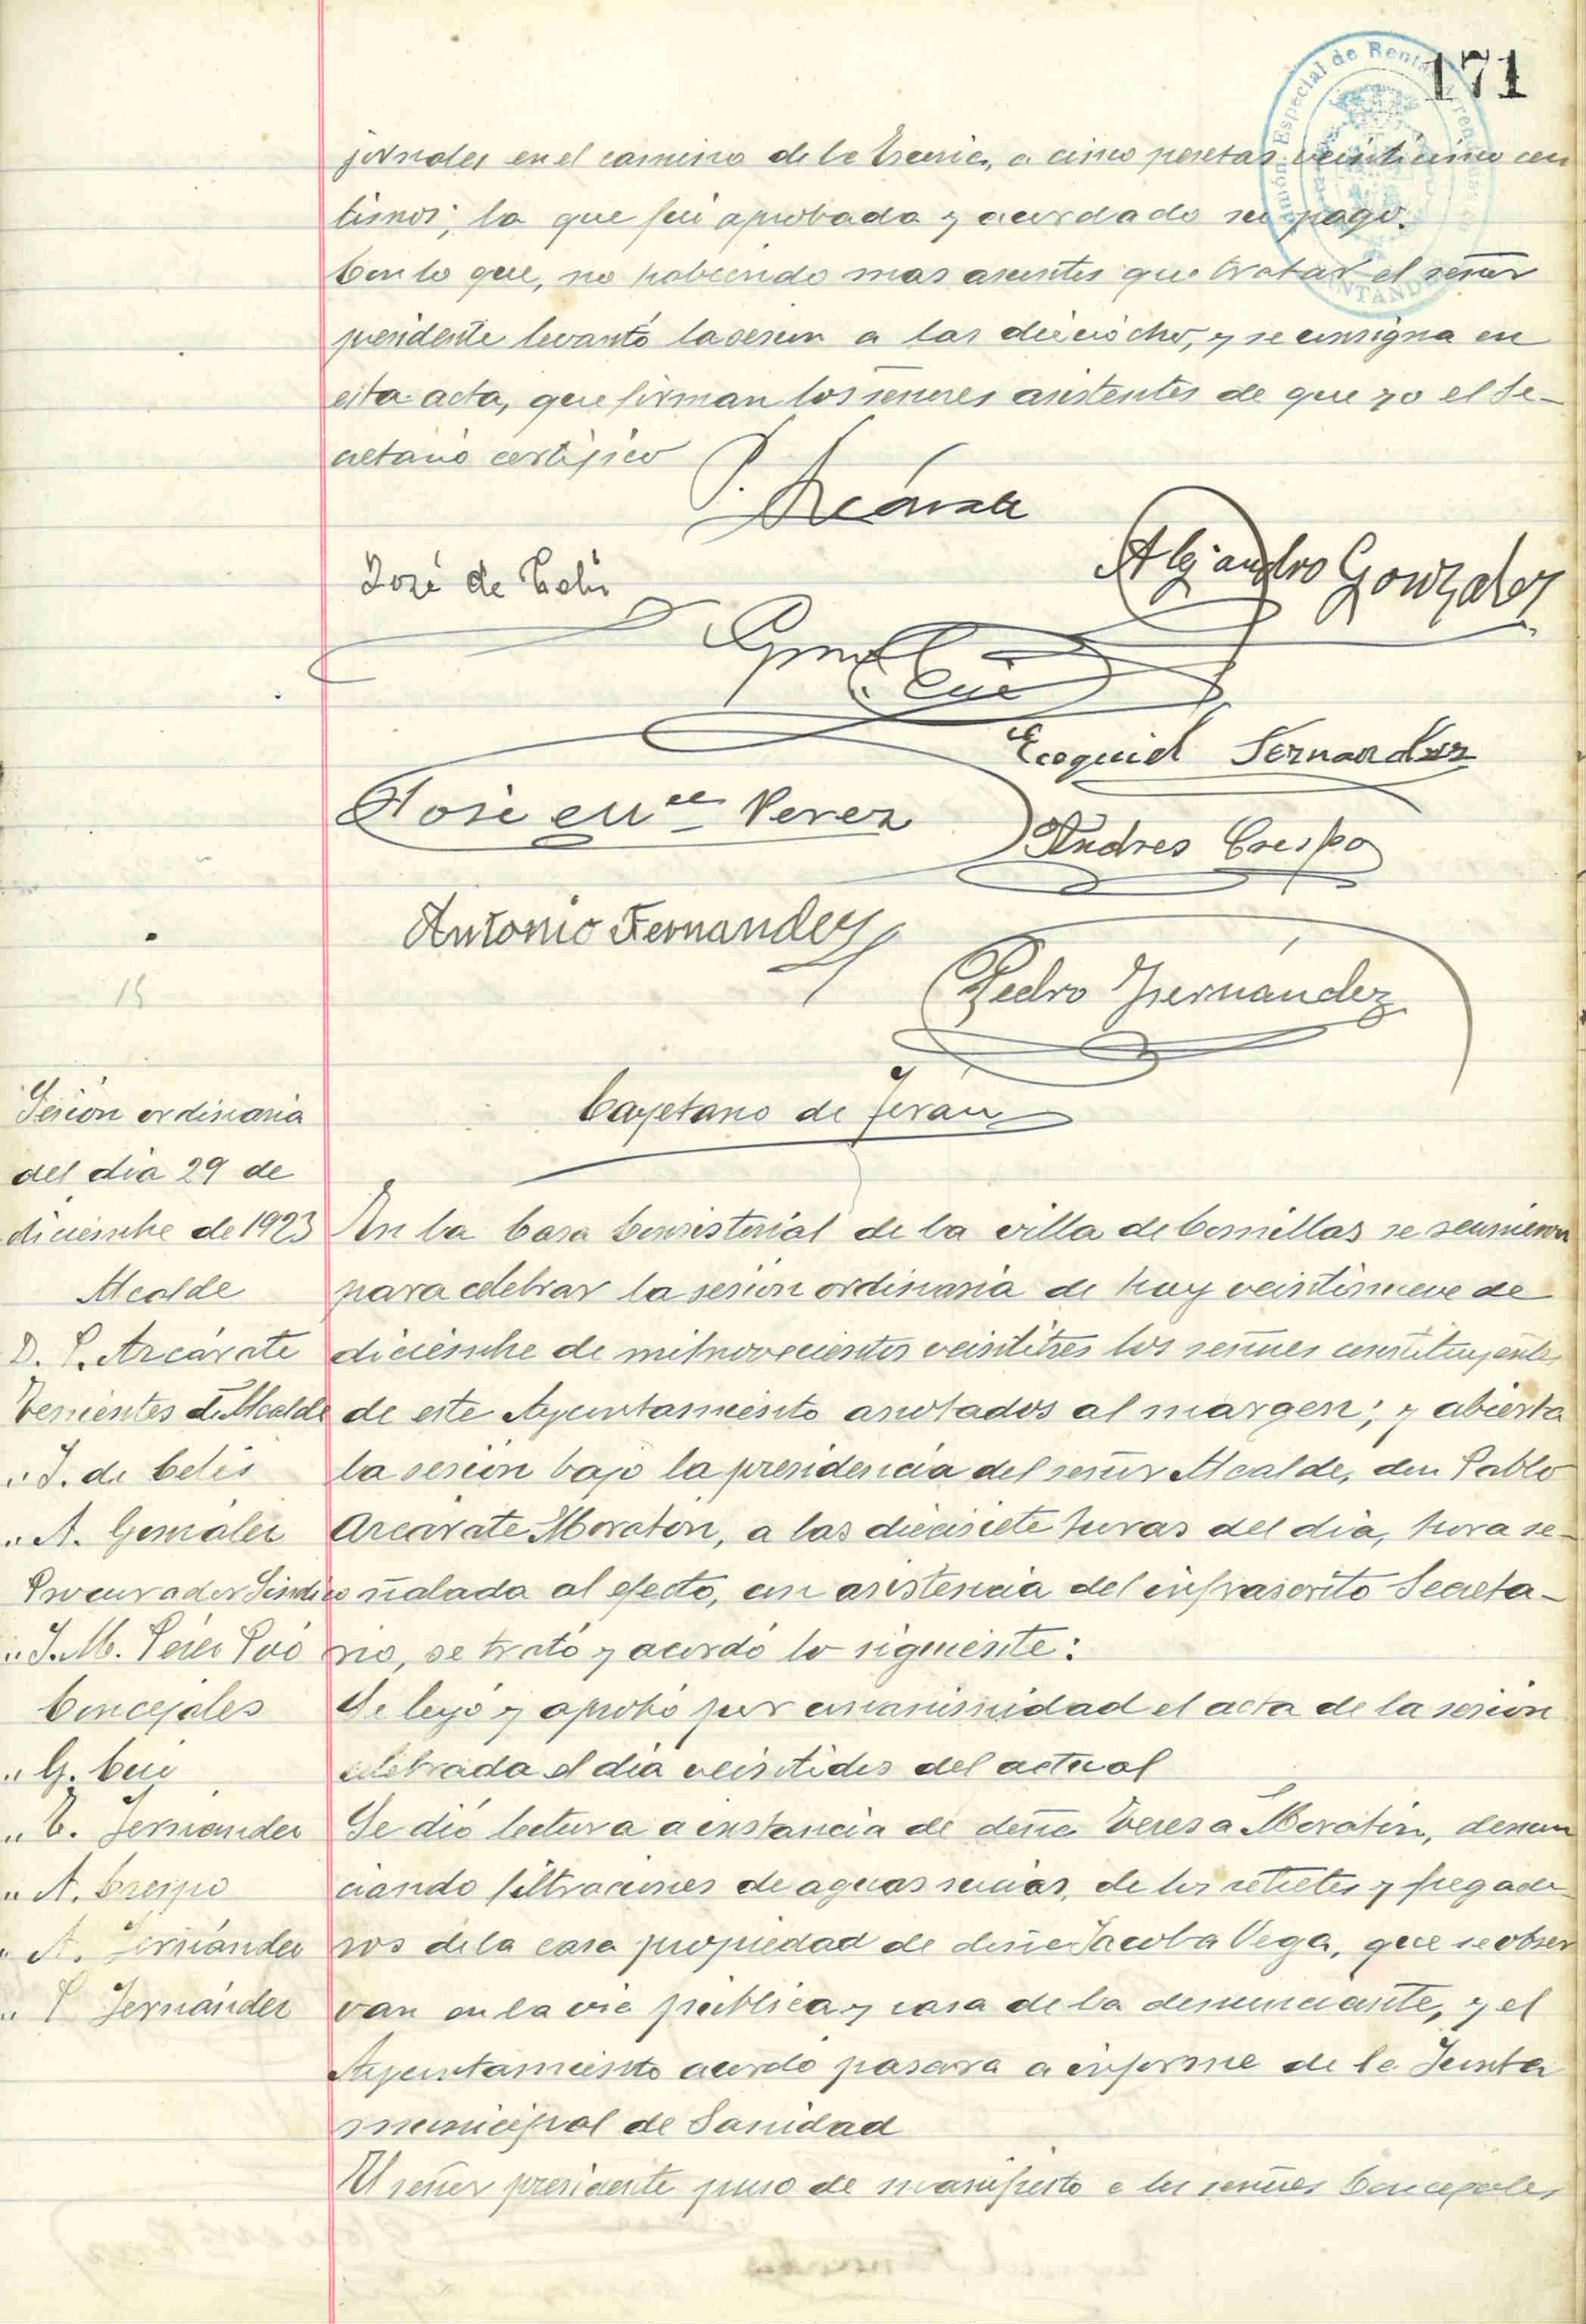 171
jornales en el camino de la a cinco pesetas veinticinco cen
timos; la que fué aprobada y acordado su pago.
Con lo que, no habiendo mas asuntos que tratar el señor
presidente levantó la sesion a las dieciocho, y se consigna en
esta acta, que firman los señores asistentes de que yo el Se-
cretario certifico
P. Arcárate
José de Celis
Alejandro Gonzalez
G. Cué
Ezequiel Fernandez
Jose Perez
Andres Crespo
Antonio Fernandez
Pedro Fernández
Cayetano de Terán
15
Sesion ordinaria
del dia 29 de
diciembre de 1923
Alcalde
D. P. Arcárate
Tenientes de Alcalde
" J. de Celis
" A. Gonzalez
Procurador Sindico
" J. M. Pérez Poó
Concejales
" G. Cué
" E. Fernández
" A. Crespo
" A. Fernández
" P Fernández
En la Casa Consistorial de la villa de Comillas se reunieron
para celebrar la sesion ordinaria de hoy veintinueve de
diciembre de mil novecientos veintitres los señores constituyentes
de este Ayuntamiento anotados al margen; y abierta
la sesión bajo la presidencia del señor Alcalde, don Pablo
Arcárate Moratón, a las diecisiete horas del dia, hora se-
ñalada al efecto, con asistencia del infrascrito Secreta-
rio, se trató y acordó lo siguiente:
Se leyó y aprobó por unanimidad el acta de la sesion
celebrada el dia veintidos del actual
Se dió lectura a instancia de doña Teresa Moratón, denun
ciando filtraciones de aguas sucias, de los retretes y fregade
ros de la casa propiedad de doña Jacoba Vega, que se obser
van en la via publica y casa de la denunciante, y el
Ayuntamiento acordó pasara a informe de la Junta
municipal de Sanidad
El señor presidente puso de manifiesto a los señores Concejales